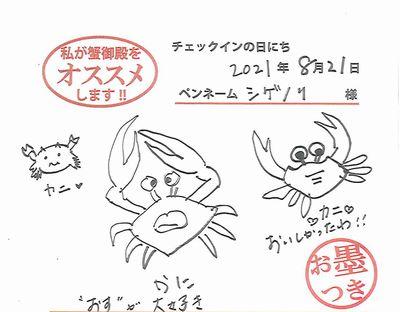 私が蟹御殿を
オススメ
します!!
チェックインの日にち
2021年 8月21日
ペンネーム シゲノリ 様
カニ♥
♡カニ♡
おいしかったわ!!
かに
"おす"が 大好き
お墨
つき